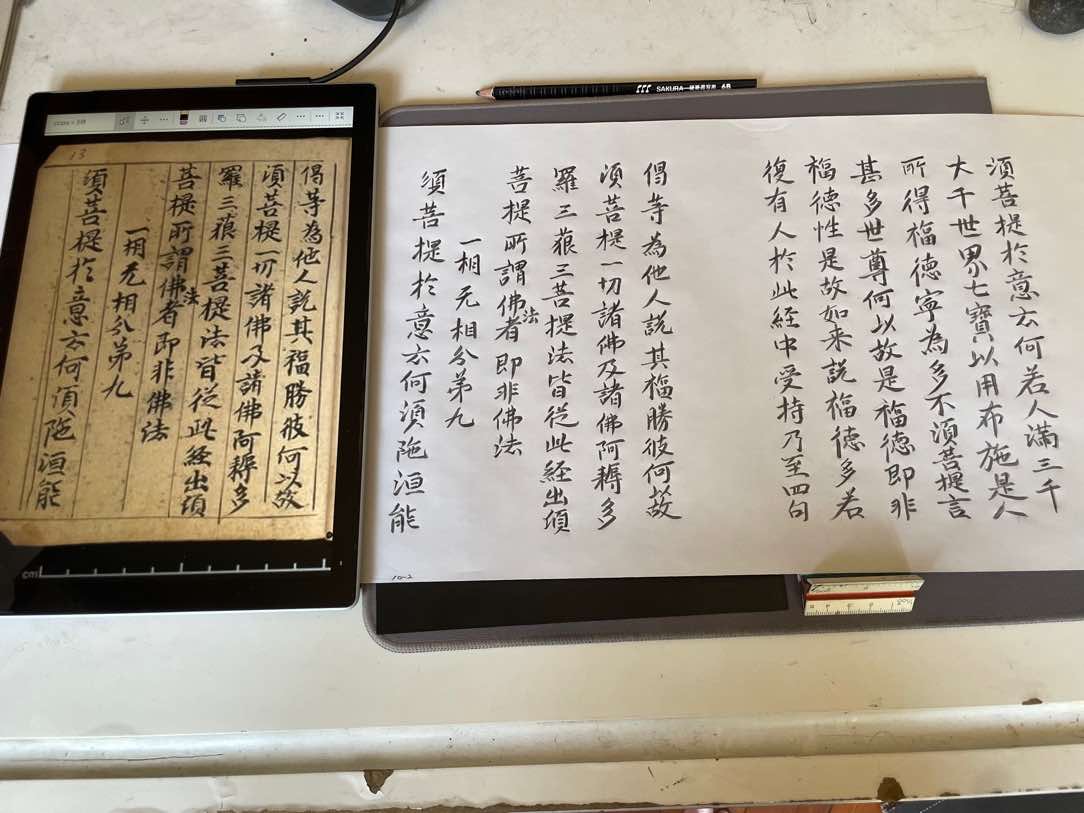 須菩提於意云何若人滿三千
大千世界七寶以用布施是人
所得福德寧為多不須菩提言
甚多世尊何以故是福德即非
福德性是故如来説福德多若
復有人於此経中受持乃至四句
偈等為他人説其福勝彼何故
須菩提一切諸佛及諸佛阿耨多
羅三藐三菩提法皆従此経出須
菩提所謂佛法者即非佛法
一相无相分第九
須菩提於意云何須陁洹能
10-2
13
偈等為他人説其福勝彼何以故
須菩提一切諸佛及諸佛阿耨多
羅三藐三菩提法皆従此経出須
菩提所謂佛法者即非佛法
一相无相分第九
須菩提於意云何須陁洹能
cm
SAKURA 6B